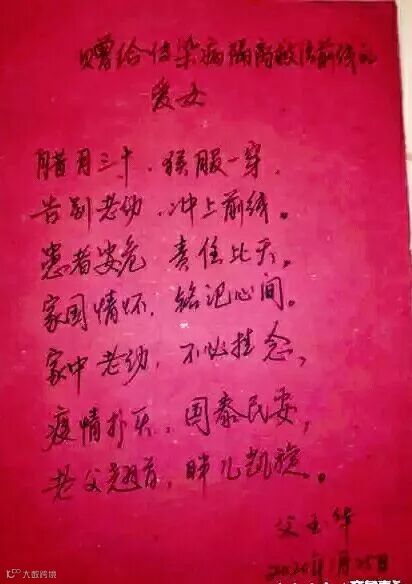 赠给传染病隔离救治前线的
爱女
腊月三十，猴服一穿，
告别老幼，冲上前线。
患者安危 责任比天。
家国情怀，铭记心间。
家中老幼，不必挂念，
疫情扑灭，国泰民安，
老父翘首，盼儿凯旋。
父玉华
2020年1月25日
大数跨境